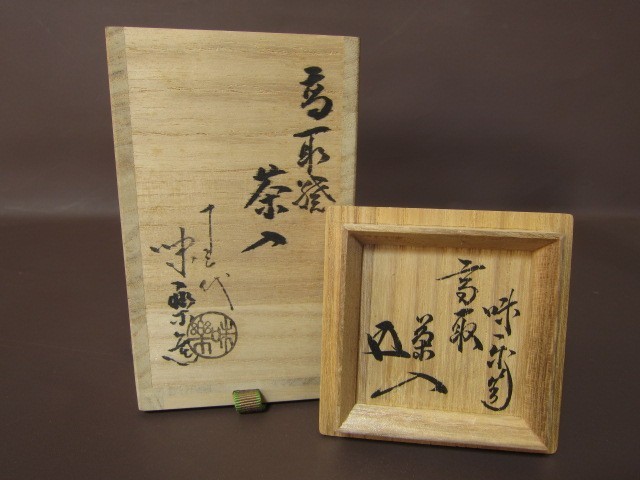 高取焼
茶入
十三代
味楽造
味楽
味楽筒
高取
茶入